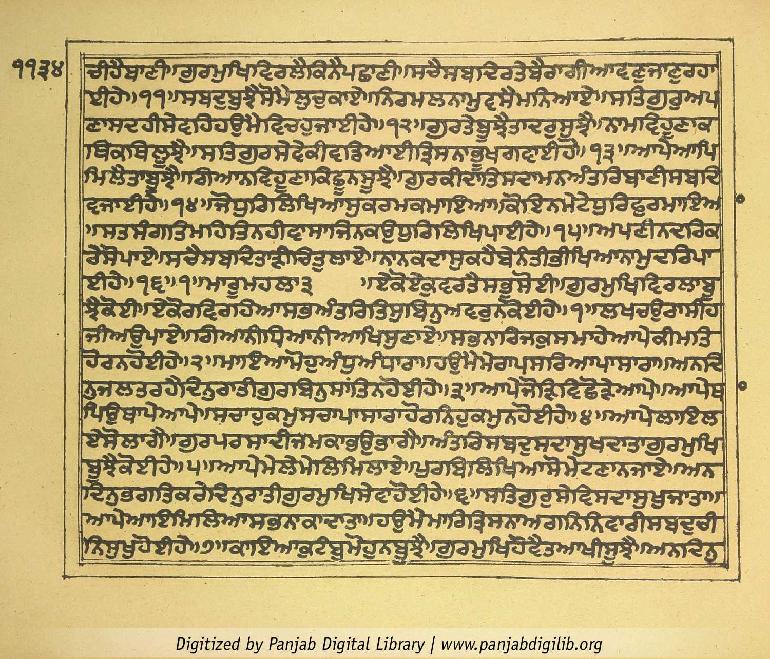 ੧੧੩੪
ਚੀਹੈਬਾਣੀ॥ਗੁਰਮੁਖਿਵਿਰਲੈਕਿਨੈਪਛਾਣੀ॥ਸਚੈਸਬਾਦਿਰਤੇਬੈਰਾਗੀਆਵਣੁਜਾਣੁਰਹਾ
ਈਹੇ॥੧੧॥ਸਬਦੁਬੁਝੈਸੋਮੈਲੁਚੁਕਾਏ॥ਨਿਰਮਲਨਾਮੁਵਸੈਮਨਿਆਏ॥ਸਤਿਗੁਰੁਅਪ
ਣਾਸਦਹੀਸੇਵਹਿਹਉਮੈਵਿਚਹੁਜਾਈਹੇ॥੧੨॥ਗੁਰਤੇਬੂਝੈਤਾਦਰੁਸੂਝੈ॥ਨਾਮਵਿਹੂਣਾਕ
ਥਿਕਥਿਲੂਝੈ॥ਸਤਿਗੁਰਸੇਵੇਕੀਵਡਿਆਈਤ੍ਰਿਸਨਾਭੂਖਗਵਾਈਹੇ॥੧੩॥ਆਪੇਆਪਿ
ਮਿਲੈਤਾਬੂਝੈ॥ਗਿਆਨਵਿਹੂਣਾਕਿਛੂਨਸੂਝੈ॥ਗੁਰਕੀਦਾਤਿਸਦਾਮਨਅੰਤਰਿਬਾਣੀਸਬਾਦਿ
ਵਜਾਈਹੇ॥੧੪॥ਜੋਧੁਰਿਲਿਖਿਆਸੁਕਰਮਕਮਾਇਆ॥ਕੋਇਨਮੇਟੈਧੁਰਿਫੁਰਮਾਇਆ
॥ਸਤਸੰਗਤਿਮਹਿਤਿਨਹੀਵਾਸਾਜਿਨਕਉਧੁਰਿਲਿਖਿਪਾਈਹੇ॥੧੫॥ਅਪਣੀਨਦਰਿਕ
ਰੇਸੋਪਾਏ॥ਸਚੈਸਬਾਦਿਤਾੜੀਚਿਤੁਲਾਏ॥ਨਾਨਕਦਾਸੁਕਹੈਬੇਨੰਤੀਭੀਖਿਆਨਾਮੁਦਰਿਪਾ
ਈਹੇ॥੧੬॥੧॥ਮਾਰੂਮਹਲਾ੩ ॥ਏਕੋਏਕੁਵਰਤੈਸਭੁਸੋਈ॥ਗੁਰਮੁਖਿਵਿਰਲਾਬੂ
ਝੈਕੋਈ॥ਏਕੋਰਵਿਰਹਿਆਸਭਅੰਤਰਿਤਿਸੁਬਿਨੁਅਵਰੁਨਕੋਈਹੇ॥੧॥ਲਖਚਉਰਾਸੀਹ
ਜੀਅਉਪਾਏ॥ਗਿਆਨੀਧਿਆਨੀਆਖਿਸੁਣਾਏ॥ਸਭਨਾਰਿਜਕੁਸਮਾਹੇਆਪੇਕੀਮਤਿ
ਹੋਰਨਹੋਈਹੇ॥੨॥ਮਾਇਆਮੋਹੁਅੰਧੁਅੰਧਾਰਾ॥ਹਉਮੈਮੇਰਾਪਸਰਿਆਪਾਸਾਰਾ॥ਅਨਦਿ
ਨੁਜਲਤਰਹੈਦਿਨੁਰਾਤੀਗੁਰਬਿਨੁਸਾਂਤਿਨਹੋਈਹੇ॥੩॥ਆਪੇਜੋੜਿਵਿਛੋੜੇਆਪੇ॥ਆਪੇਥ
ਪਿਉਥਾਪੇਆਪੇ॥ਸਚਾਹੁਕਮੁਸਚਾਪਾਸਾਰਾਹੋਰਨਿਹੁਕਮੁਨਹੋਈਹੇ॥੪॥ਆਪੇਲਾਇਲ
ਏਸੋਲਾਗੈ॥ਗੁਰਪਰਸਾਦੀਜਮਕਾਭਉਭਾਗੈ॥ਅੰਤਰਿਸਬਦੁਸਦਾਸੁਖਦਾਤਾਗੁਰਮੁਖਿ
ਬੂਝੈਕੋਈਹੇ॥੫॥ਆਪੇਮੇਲੇਮੇਲਿਮਿਲਾਏ॥ਪੁਰਬਿਲਿਖਿਆਸੋਮੇਟਣਾਨਜਾਏ॥ਅਨ
ਦਿਨੁਭਗਤਿਕਰੇਦਿਨੁਰਾਤੀਗੁਰਮੁਖਿਸੇਵਾਹੋਈਹੇ॥੬॥ਸਤਿਗੁਰੁਸੇਵਿਸਦਾਸੁਖੁਜਾਤਾ॥
ਆਪੇਆਇਮਿਲਿਆਸਭਨਾਕਾਦਾਤਾ॥ਹਉਮੈਮਾਰਿਤ੍ਰਿਸਨਾਅਗਨਿਨਿਵਾਰੀਸਬਦੁਚੀ
ਨਿਸੁਖੁਹੋਈਹੇ॥੭॥ਕਾਇਆਕੁਟੰਬੁਮੋਹੁਨਬੂਝੈ॥ਗੁਰਮੁਖਿਹੋਵੈਤਆਖੀਸੂਝੈ॥ਅਨਦਿਨੁ
Digitized by Panjab Digital Library | www.panjabdigilib.org